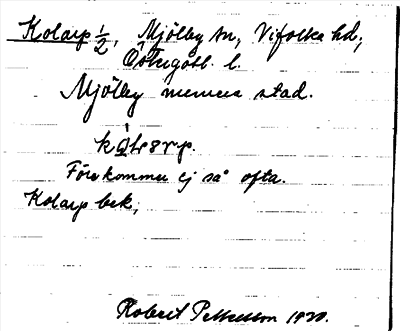 Kolarp 1/2, Mjölby sn, Vifolka hd,
Östergötl. l.
Mjölby numera stad.
Förekommer ej så ofta.
Kolarp bek,
Robert Pettersson 1920.